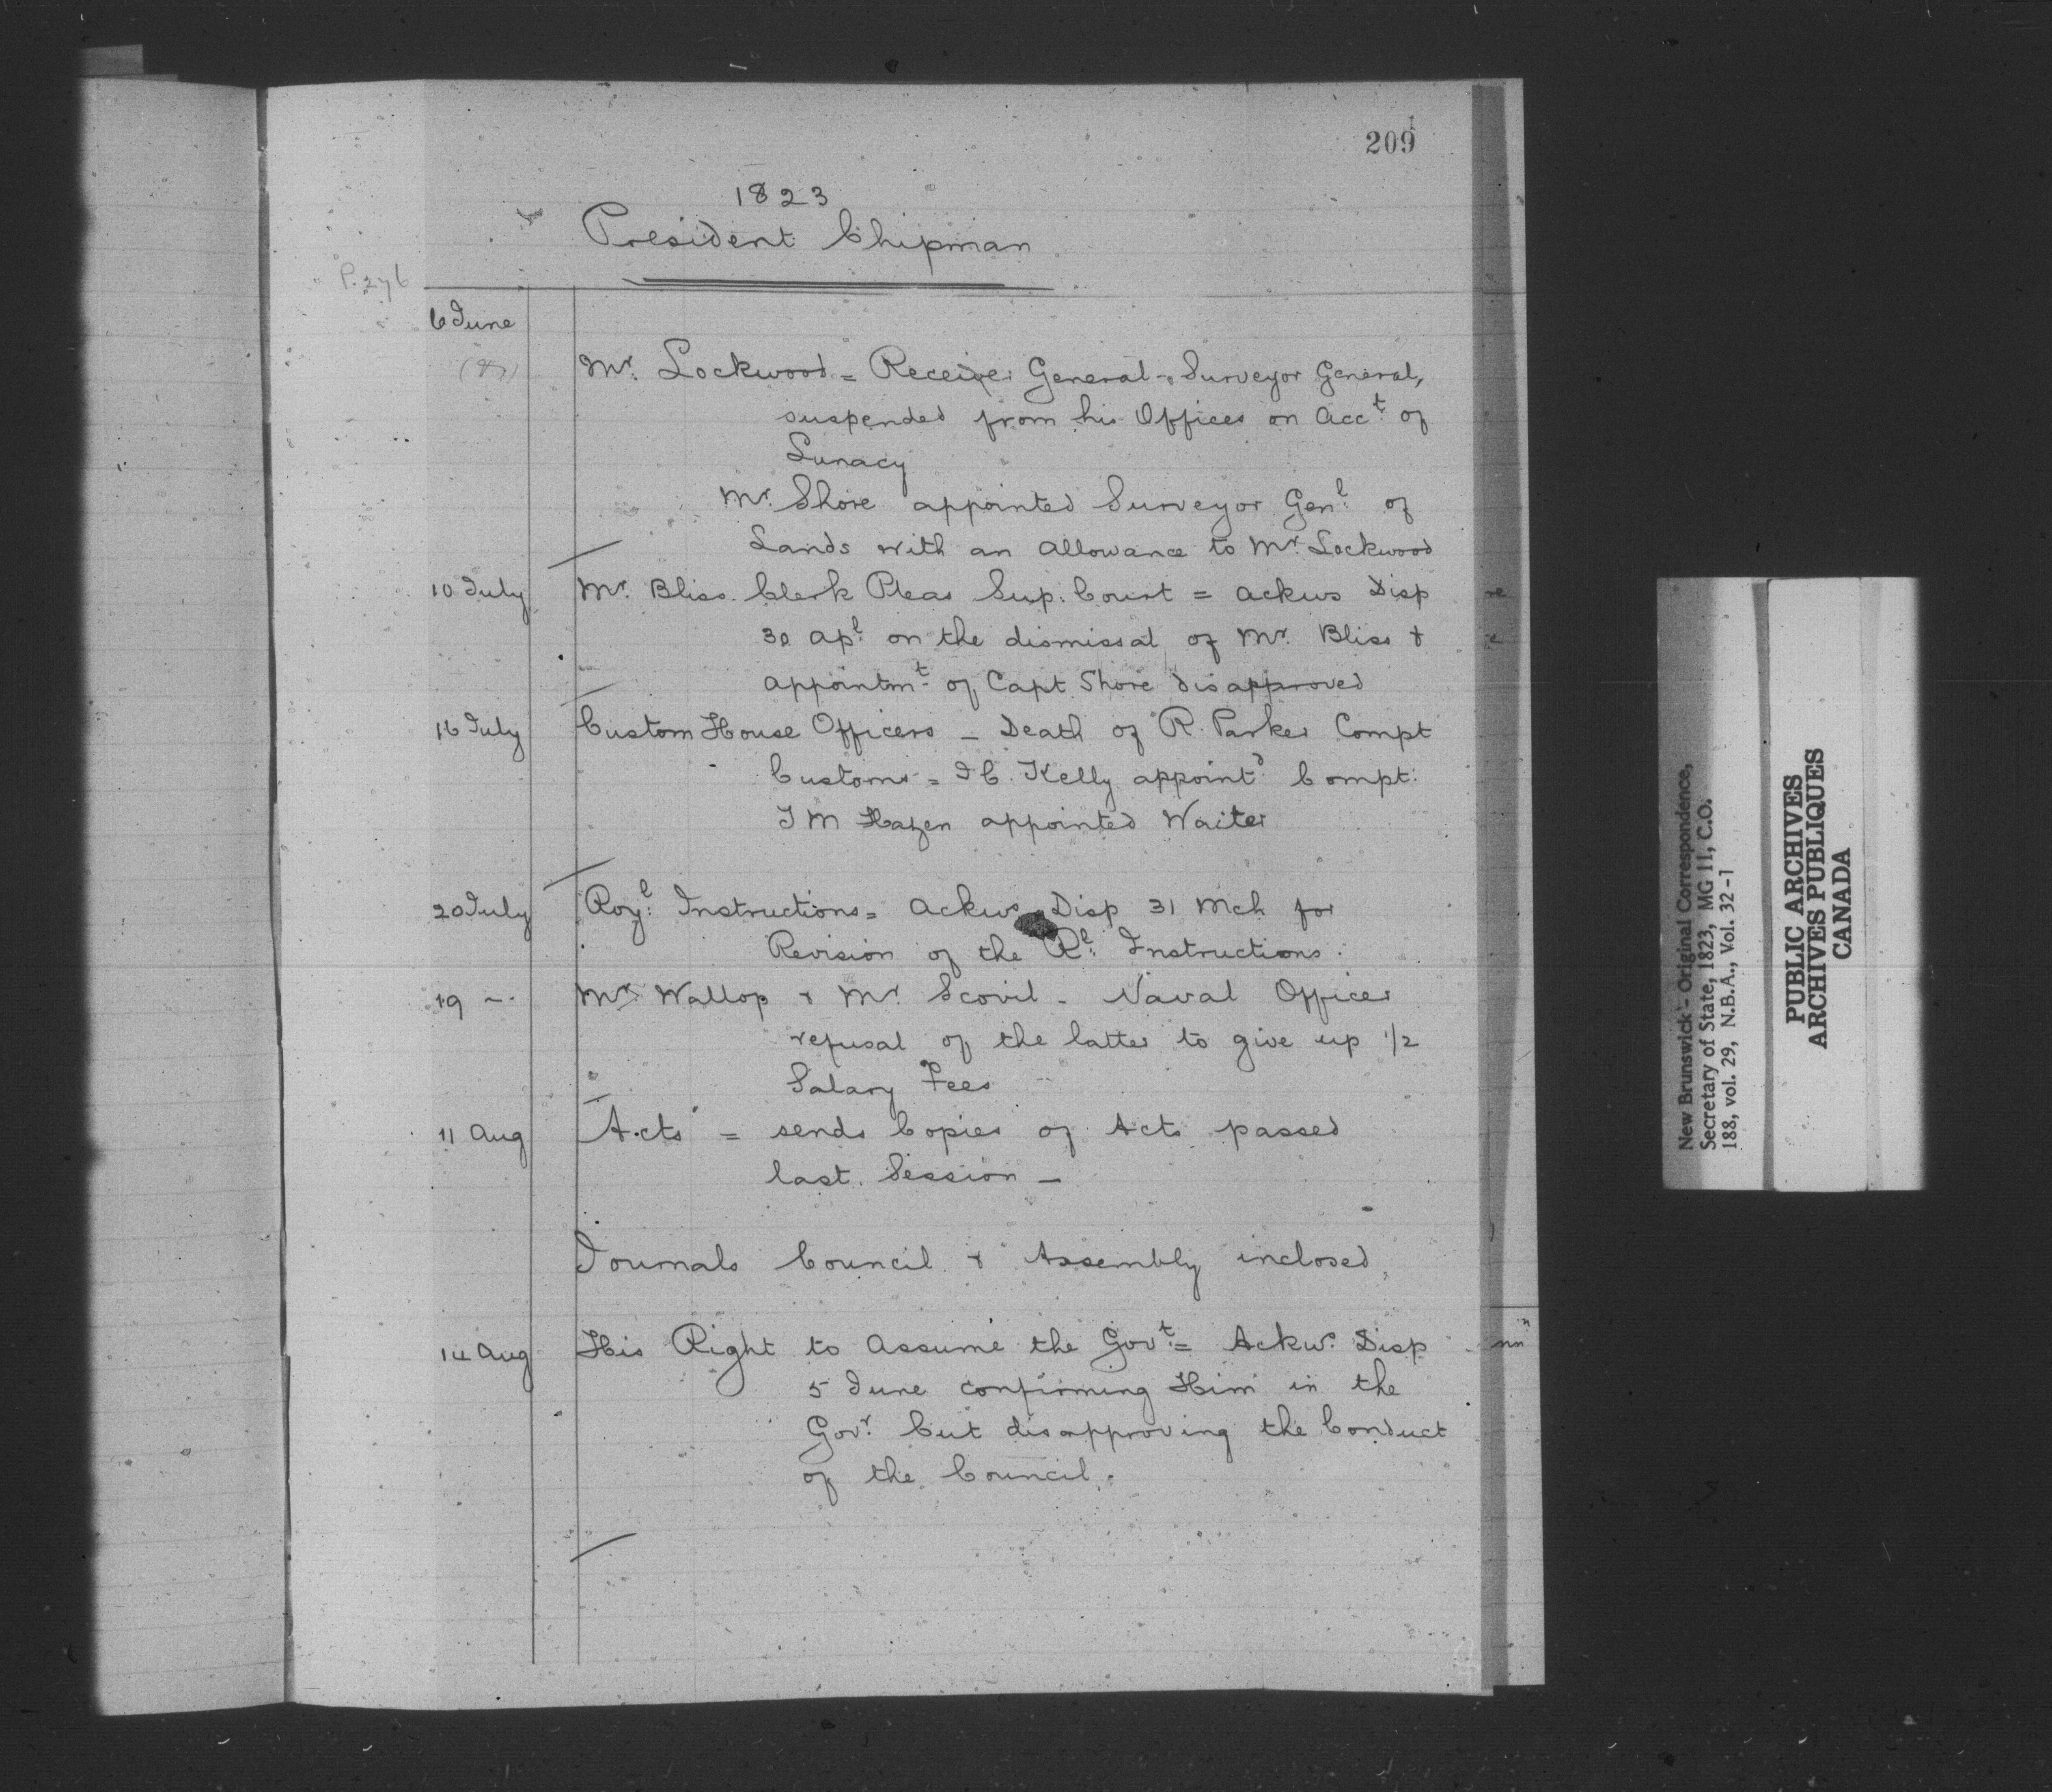 209
1823
President Chipman
P. 276
6 June
Mr. Lockwood = Receiver General & Surveyor General,
suspended from his Offices on Acct. of
Lunacy
Mr. Shore appointed Surveyor Genl. of
Lands with an allowance to Mr. Lockwood
10 July Mr. Bliss. Clerk Pleas Sup. Court = Ackws Disp
30 Apl. on the dismissal of Mr. Bliss &
appointmt. of Capt Shore disapproved
16 July Custom House Officers – Death of R. Parker Compt
Customs = J C. Kelly appointd Compt:
J M Hazen appointed Waiter
20 July Royl: Instructions = Ackws Disp 31 Mch for
Revision of the Rl: Instructions.
19 — Mr Wallop & Mr. Scovil – Naval Officer
refusal of the latter to give up 1/2
Salary Fees
11 Aug Acts = sends Copies of Acts passed
last Session –
Journals Council & Assembly inclosed
14 Aug His Right to Assume the Govt. = Ackws. Disp
5 June confirming Him in the
Govr. but disapproving the Conduct
of the Council.
New Brunswick - Original Correspondence,
Secretary of State, 1823, MG 11, C.O.
188, vol. 29, N.B.A., Vol. 32-1
PUBLIC ARCHIVES
ARCHIVES PUBLIQUES
CANADA